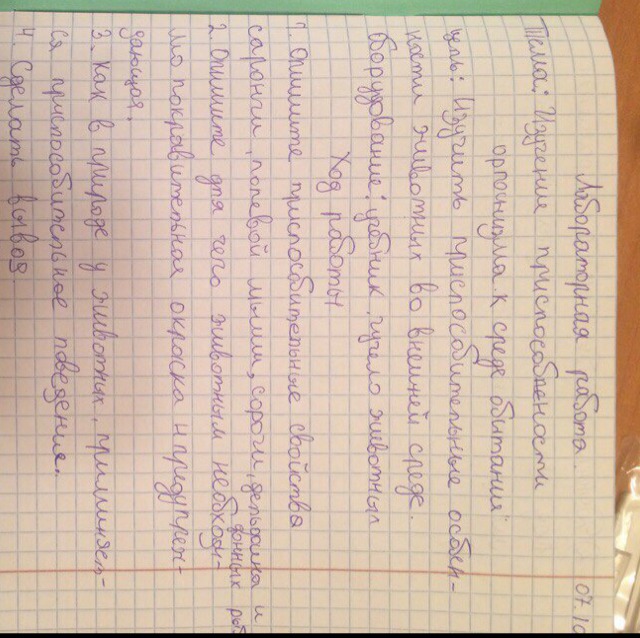 07.10
Лабораторная работа.
Тема: Изучение приспособленности
организма к среде обитания
цель: Изучить приспособительные особен-
ности животных во внешней среде.
Оборудование: учебник, чучело животных
Ход работы
1. Опишите приспособительные свойства
саранчи, полевой мыши, сороки, дельфина и
донных рыб
2. Опишите для чего животным необходи-
мо покровительная окраска и предупреж-
дающая.
3. Как в природе у животных, применяет-
ся приспособительное поведение.
4. Сделать вывод.